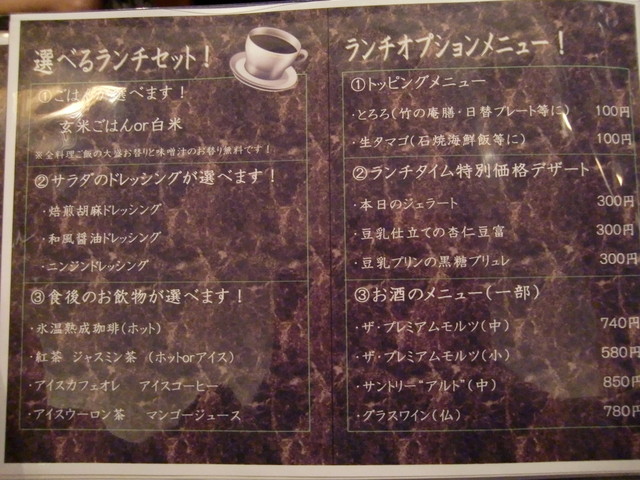 選べるランチセット！
①ごはんが選べます！
玄米ごはんor白米
※全料理ご飯の大盛お替りと味噌汁のお替り無料です！
②サラダのドレッシングが選べます！
・焙煎胡麻ドレッシング
・和風醤油ドレッシング
・ニンジンドレッシング
③食後のお飲物が選べます！
・氷温熟成珈琲（ホット）
・紅茶 ジャスミン茶 （ホットorアイス）
・アイスカフェオレ アイスコーヒー
・アイスウーロン茶 マンゴージュース
ランチオプションメニュー！
①トッピングメニュー
・とろろ（竹の庵膳・日替プレート等に） 100円
・生タマゴ（石焼海鮮飯等に） 100円
②ランチタイム特別価格デザート
・本日のジェラート 300円
・豆乳仕立ての杏仁豆富 300円
・豆乳プリンの黒糖ブリュレ 300円
③お酒のメニュー（一部）
・ザ・プレミアムモルツ（中） 740円
・ザ・プレミアムモルツ（小） 580円
・サントリー“アルト”（中） 850円
・グラスワイン（仏） 780円